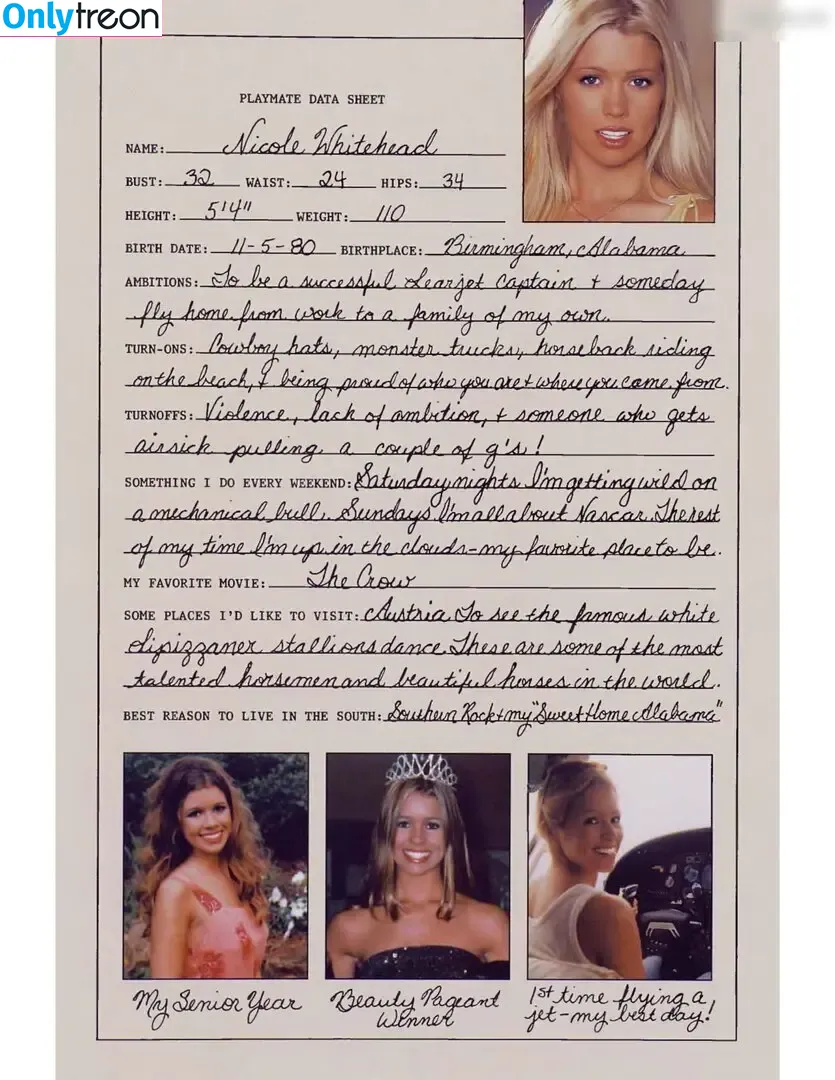 Onlytreon
PLAYMATE DATA SHEET
NAME: Nicole Whitehead
BUST: 32 WAIST: 24 HIPS: 34
HEIGHT: 5'4" WEIGHT: 110
BIRTH DATE: 11-5-80 BIRTHPLACE: Birmingham, Alabama
AMBITIONS: To be a successful Learjet Captain & someday
fly home from work to a family of my own.
TURN-ONS: Cowboy hats, monster trucks, horseback riding
on the beach, & being proud of who you are & where you come from.
TURNOFFS: Violence, lack of ambition, & someone who gets
airsick pulling a couple of g's!
SOMETHING I DO EVERY WEEKEND: Saturday nights I'm getting wild on
a mechanical bull. Sundays I'm all about Nascar. The rest
of my time I'm up in the clouds-my favorite place to be.
MY FAVORITE MOVIE: The Crow
SOME PLACES I'D LIKE TO VISIT: Austria To see the famous white
Lipizzaner stallions dance. These are some of the most
talented horsemen and beautiful horses in the world.
BEST REASON TO LIVE IN THE SOUTH: Southern Rock & my "Sweet Home Alabama"
My Senior Year
Beauty Pageant
Winner
1st time flying a
jet-my best day!